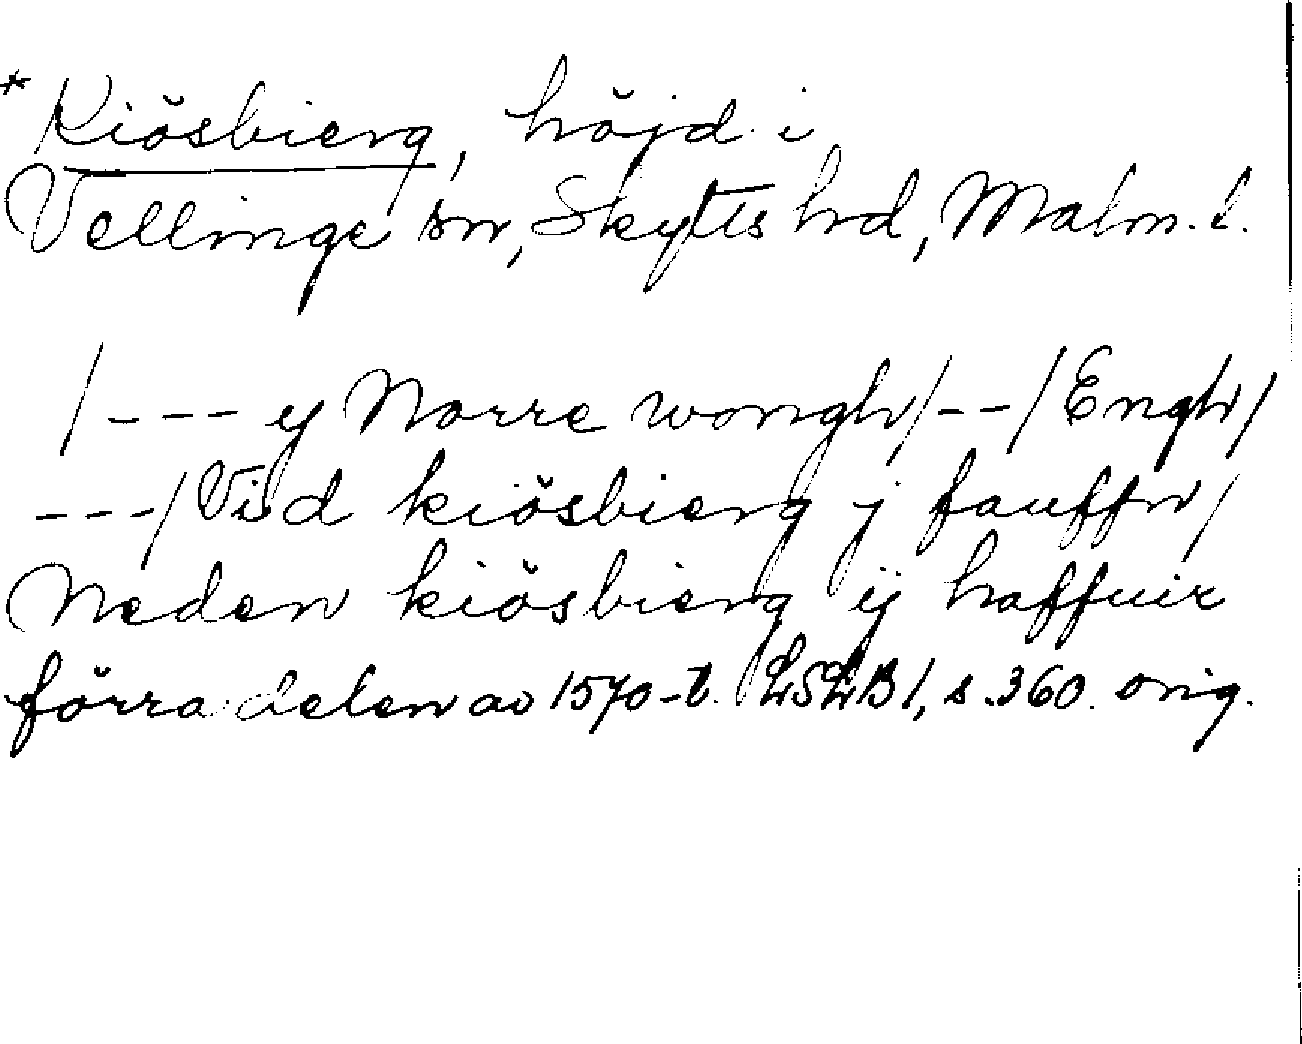 * Kiösbierg, höjd i
Vellinge sn, Skytts hd, Malm. l.
/--- ij Norre wongh/--/Engh/
---/Vid kiösbierg j fauffn/
Neden kiösbierg ij haffuir
förra delen av 1570-t. LSLB1, s. 360. orig.